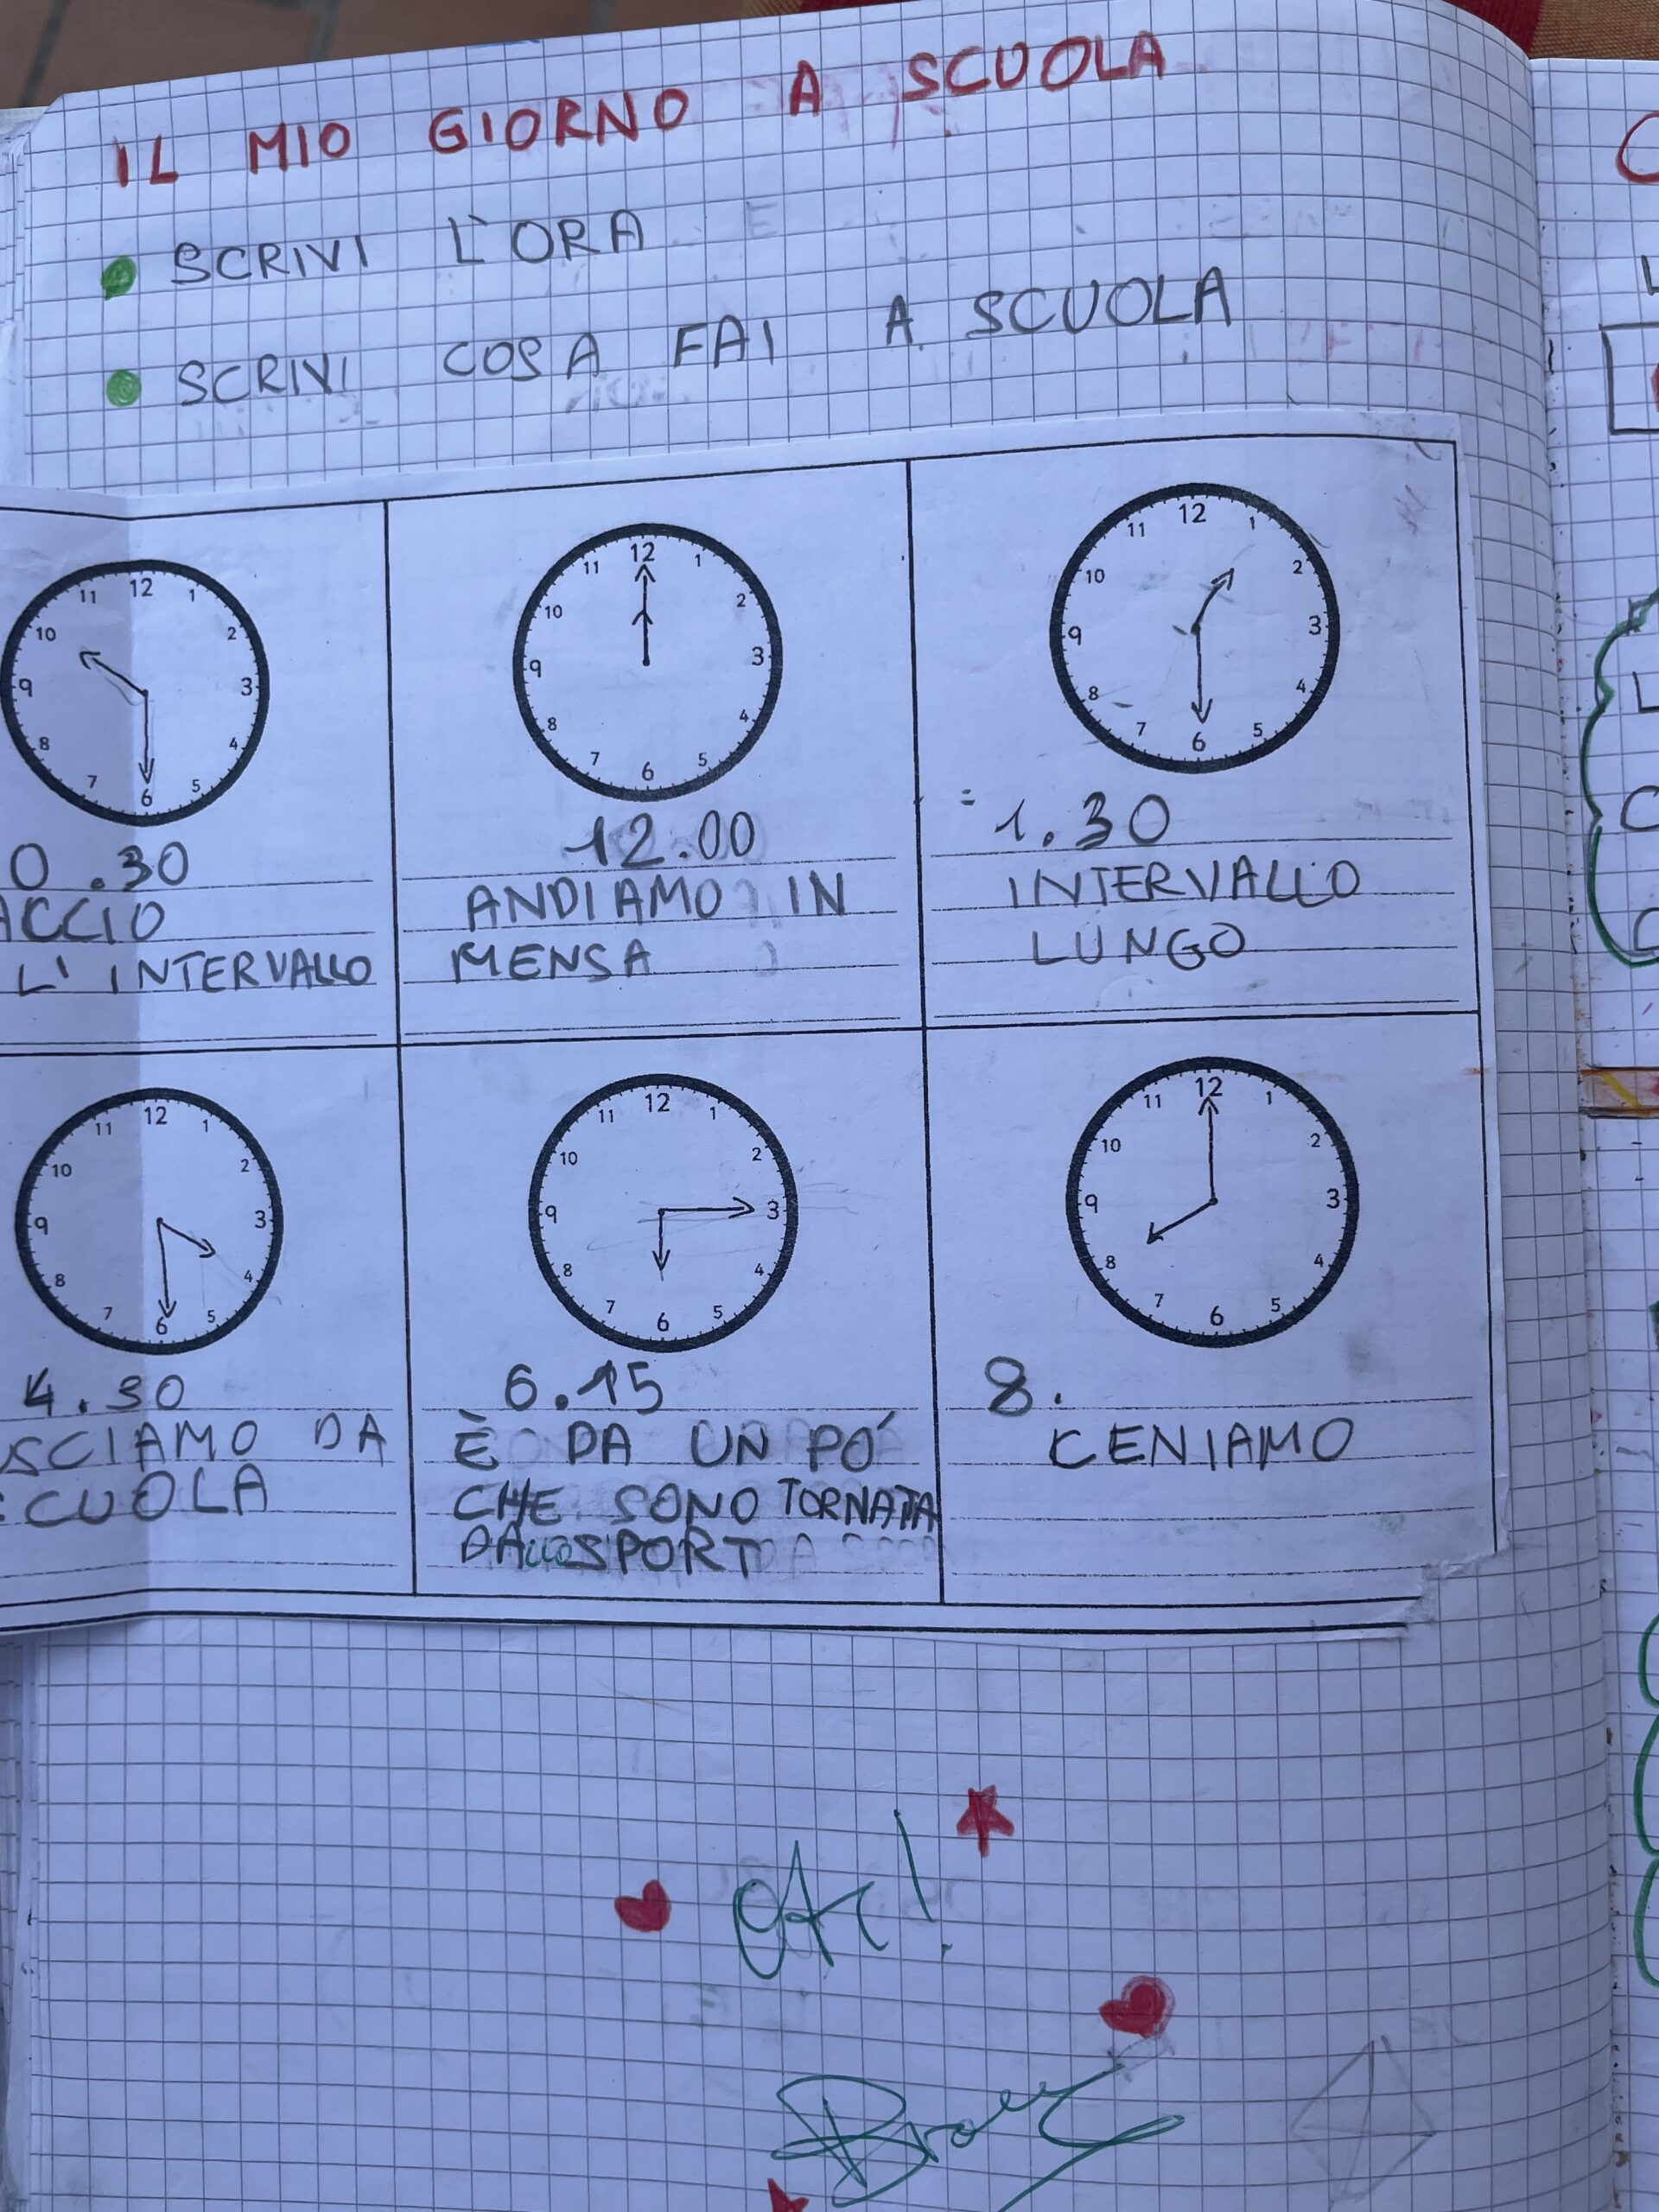 IL MIO GIORNO A SCUOLA
SCRIVI L'ORA
SCRIVI COSA FAI A SCUOLA
12 1 2 3 4 5 6 7 8 9 10 11
0.30
ACCIO
L'INTERVALLO
12 1 2 3 4 5 6 7 8 9 10 11
12.00
ANDIAMO IN
MENSA
12 1 2 3 4 5 6 7 8 9 10 11
1.30
INTERVALLO
LUNGO
12 1 2 3 4 5 6 7 8 9 10 11
4.30
SCIAMO DA
CUOLA
12 1 2 3 4 5 6 7 8 9 10 11
6.15
È DA UN PO'
CHE SONO TORNATA
DALLO SPORT
12 1 2 3 4 5 6 7 8 9 10 11
8.
CENIAMO